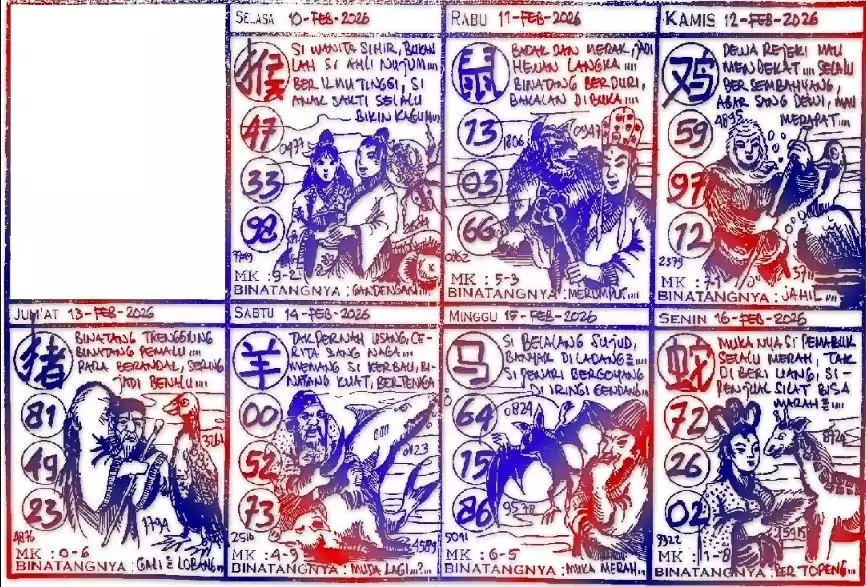 SELASA 10-FEB-2026
猴
SI WANITA SIHIR, BUKAN
LAH SI AHLI NUJUM....
BERILMU TINGGI, SI
ANAK SAKTI SELALU
BIKIN KAGUM....
47
33
98
0477
MK : 9-2
BINATANGNYA : GANDENGAN....
RABU 11-FEB-2026
鼠
BADAK DAN MERAK, JADI
HEWAN LANGKA....
BINATANG BERDURI,
BAKALAN DIBUKA....
13
03
66
1806
0947
0362
MK : 5-3
BINATANGNYA : MERUMPUT....
KAMIS 12-FEB-2026
鸡
DEWA REJEKI MAU
MENDEKAT.... SELALU
BERSEMBAHYANG,
AGAR SANG DEWI, MAU
MERAPAT....
4895
59
97
12
2379
MK : 7-1
BINATANGNYA : JAHIL....
JUM'AT 13-FEB-2026
猪
BINATANG TRENGGILING
BINATANG PEMALU....
PARA BERANDAL, SERING
JADI BENALU....
81
49
23
3264
1794
4876
MK : 0-6
BINATANGNYA : GALI = LOBANG....
SABTU 14-FEB-2026
羊
TAK PERNAH USANG, CE-
RITA SANG NAGA....
MEMANG SI KERBAU, BI-
NATANG KUAT, BERTENAGA
00
52
73
0123
2516
4589
MK : 4-9
BINATANGNYA : MUDA LAGI...?...
MINGGU 15-FEB-2026
马
SI BELALANG SUJUD,
BANYAK DILADANG=....
SI PENARI BERGOYANG
DI IRINGI GENDANG....
64
15
86
0824
9578
5091
MK : 6-5
BINATANGNYA : MUKA MERAH....
SENIN 16-FEB-2026
蛇
MUKANYA SI PEMABUK
SELALU MERAH, TAK
DIBERI UANG, SI-
PENJUAL SILAT BISA
MARAH=....
72
26
02
8926
5915
3922
MK : 1-8
BINATANGNYA : BERTOPENG....